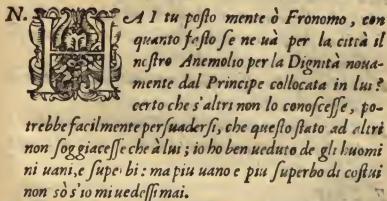 N. HAI tu posto mente ò Fronomo, con
quanto fasto se ne uà per la città il
nostro Anemolio per la Dignità noua-
mente dal Principe collocata in lui?
certo che s'altri non lo conoscesse, po-
trebbe facilmente persuadersi, che questo stato ad altri
non soggiacesse che à lui; io ho ben ueduto de gli huomi
ni uani, e superbi: ma piu uano e piu superbo di costui
non sò s'io mi uedessi mai.